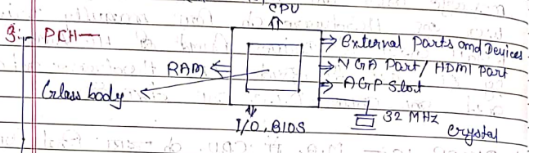 CPU
9. PCH—
External Parts and Devices
RAM
VGA Part / HDMI Part
AGP Slot
Glass body
32 MHz
I/O, BIOS
Crystal